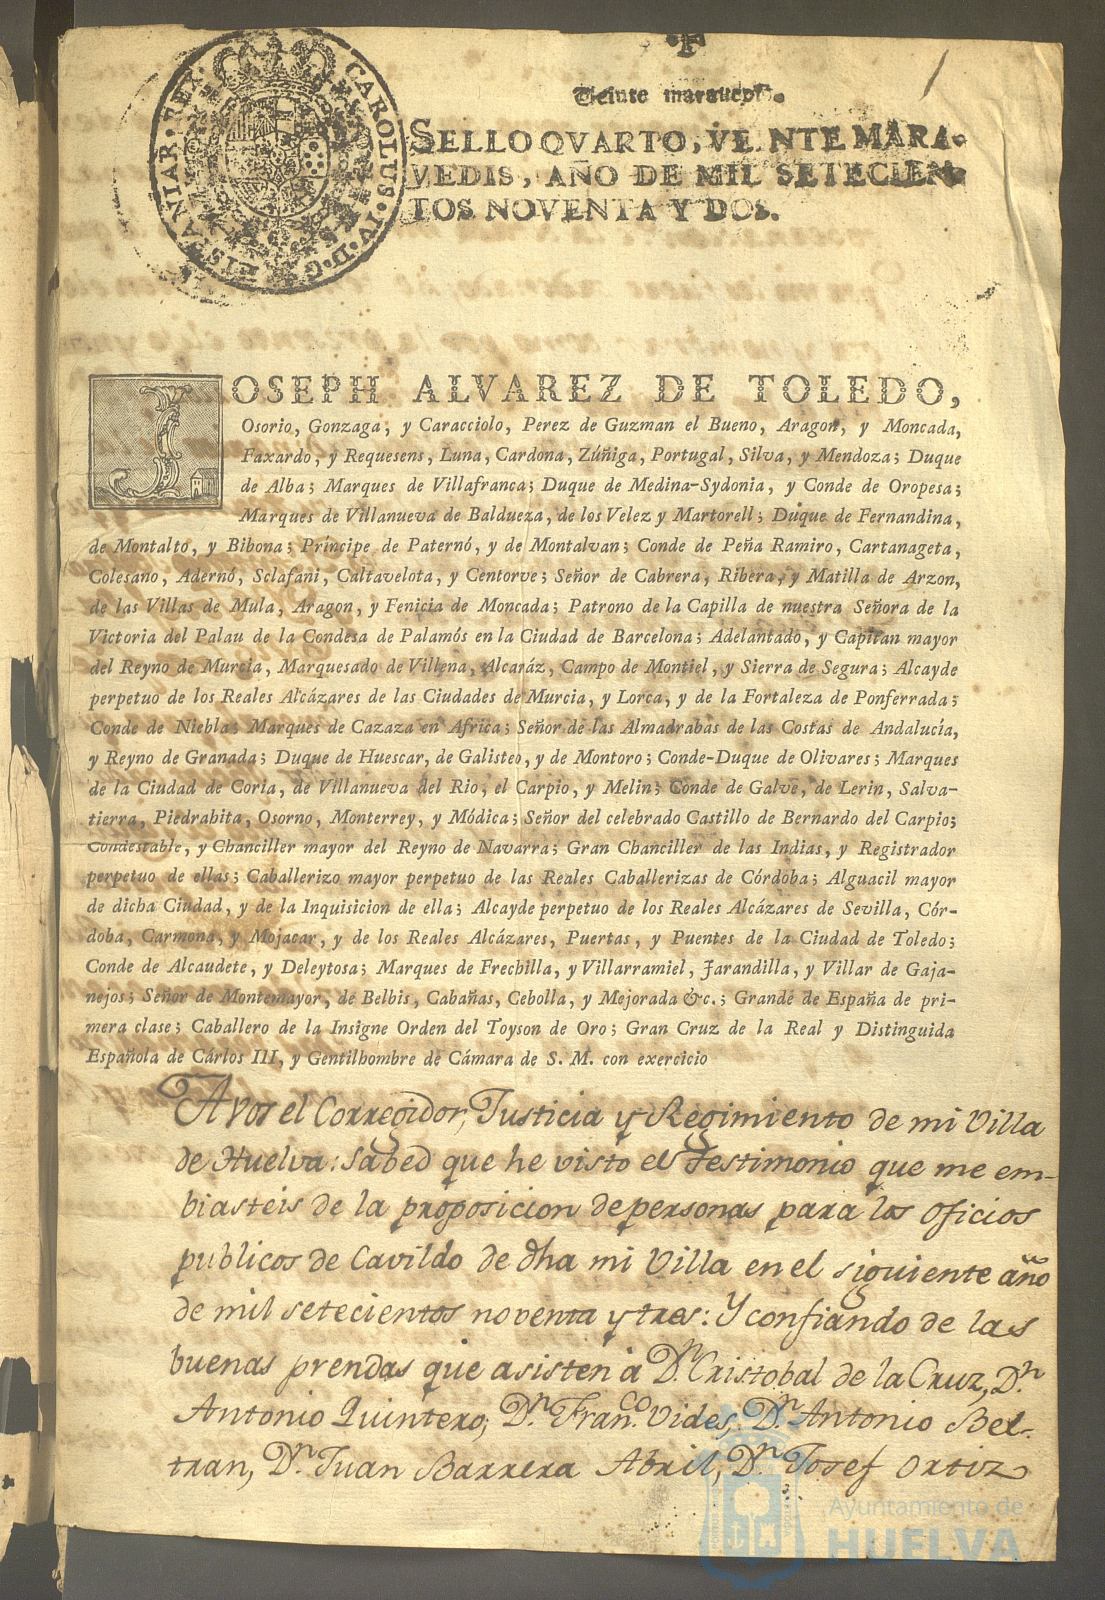 CAROLUS · IV · D · G · HISPANIAR · REX ·
Veinte maravedis.
SELLO QVARTO, VEINTE MARA-
VEDIS, AÑO DE MIL SETECIEN-
TOS NOVENTA Y DOS.
JOSEPH ALVAREZ DE TOLEDO,
Osorio, Gonzaga, y Caracciolo, Perez de Guzman el Bueno, Aragon, y Moncada,
Faxardo, y Requesens, Luna, Cardona, Zúñiga, Portugal, Silva, y Mendoza; Duque
de Alba; Marques de Villafranca; Duque de Medina-Sydonia, y Conde de Oropesa;
Marques de Villanueva de Baldueza, de los Velez y Martorell; Duque de Fernandina,
de Montalto, y Bibona; Príncipe de Paternó, y de Montalvan; Conde de Peña Ramiro, Cartanageta,
Colesano, Adernó, Sclafani, Caltavelota, y Centorve; Señor de Cabrera, Ribera, y Matilla de Arzon,
de las Villas de Mula, Aragon, y Fenicia de Moncada; Patrono de la Capilla de nuestra Señora de la
Victoria del Palau de la Condesa de Palamós en la Ciudad de Barcelona; Adelantado, y Capitan mayor
del Reyno de Murcia, Marquesado de Villena, Alcaráz, Campo de Montiel, y Sierra de Segura; Alcayde
perpetuo de los Reales Alcázares de las Ciudades de Murcia, y Lorca, y de la Fortaleza de Ponferrada;
Conde de Niebla; Marques de Cazaza en Africa; Señor de las Almadrabas de las Costas de Andalucía,
y Reyno de Granada; Duque de Huescar, de Galisteo, y de Montoro; Conde-Duque de Olivares; Marques
de la Ciudad de Coria, de Villanueva del Rio, el Carpio, y Melin; Conde de Galve, de Lerin, Salva-
tierra, Piedrahita, Osorno, Monterrey, y Módica; Señor del celebrado Castillo de Bernardo del Carpio;
Condestable, y Chanciller mayor del Reyno de Navarra; Gran Chanciller de las Indias, y Registrador
perpetuo de ellas; Caballerizo mayor perpetuo de las Reales Caballerizas de Córdoba; Alguacil mayor
de dicha Ciudad, y de la Inquisicion de ella; Alcayde perpetuo de los Reales Alcázares de Sevilla, Cór-
doba, Carmona, y Mojacar, y de los Reales Alcázares, Puertas, y Puentes de la Ciudad de Toledo;
Conde de Alcaudete, y Deleytosa; Marques de Frechilla, y Villarramiel, Jarandilla, y Villar de Gaja-
nejos; Señor de Montemayor, de Belbis, Cabañas, Cebolla, y Mejorada &c.; Grande de España de pri-
mera clase; Caballero de la Insigne Orden del Toyson de Oro; Gran Cruz de la Real y Distinguida
Española de Cárlos III, y Gentilhombre de Cámara de S. M. con exercicio
A vos el Corregidor, Justicia y Regimiento de mi Villa
de Huelva: Sabed que he visto el Testimonio que me em-
biasteis de la proposicion de personas para los oficios
publicos de Cavildo de dha mi Villa en el siguiente año
de mil setecientos noventa y tres: Y confiando de las
buenas prendas que asisten á Dn. Cristobal de la Cruz, Dn.
Antonio Quintero, Dn. Franco. Vides, Dn. Antonio Bel-
tran, Dn. Juan Barrera Abril, Dn. Josef Ortiz
Ayuntamiento de
HUELVA